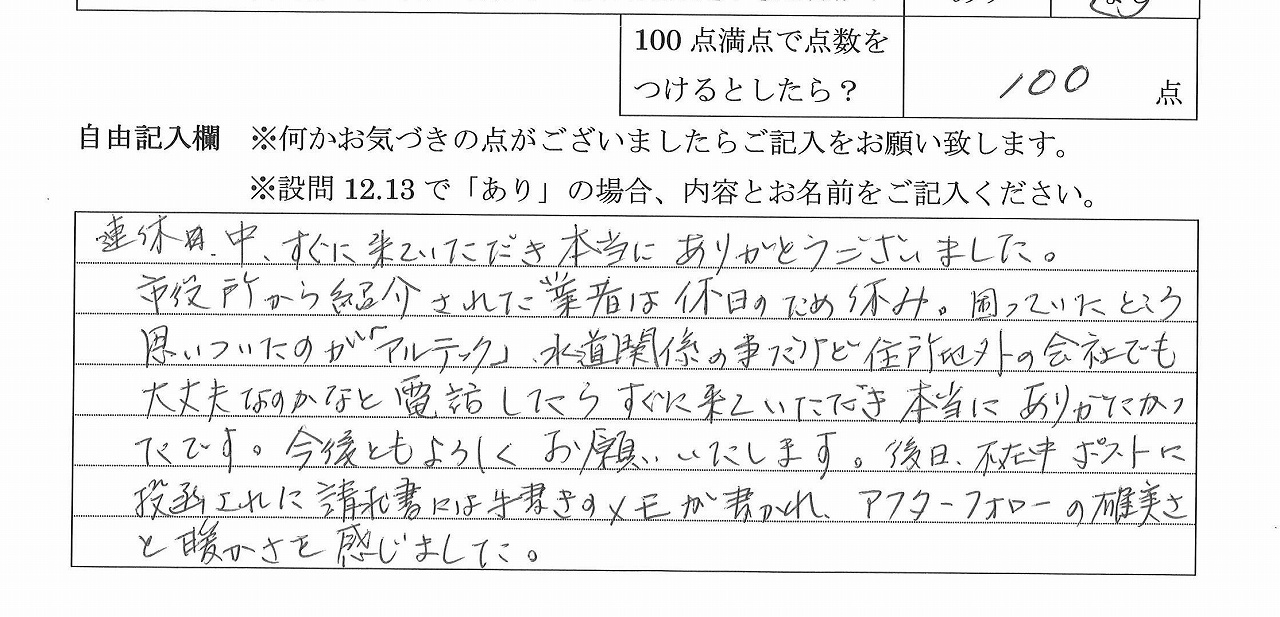 100 点満点で点数を
つけるとしたら？
100 点
自由記入欄 ※何かお気づきの点がございましたらご記入をお願い致します。
※設問 12.13 で「あり」の場合、内容とお名前をご記入ください。
連休日中、すぐに来ていただき本当にありがとうございました。
市役所から紹介された業者は休日のため休み。困っていたところ
思いついたのが「アルテック」水道関係の事だけど住所地外の会社でも
大丈夫なのかなと電話したらすぐに来ていただき本当にありがたかっ
たです。今後ともよろしくお願いいたします。後日、不在中ポストに
投函された請求書には手書きのメモが書かれ、アフターフォローの確実さ
と暖かさを感じました。